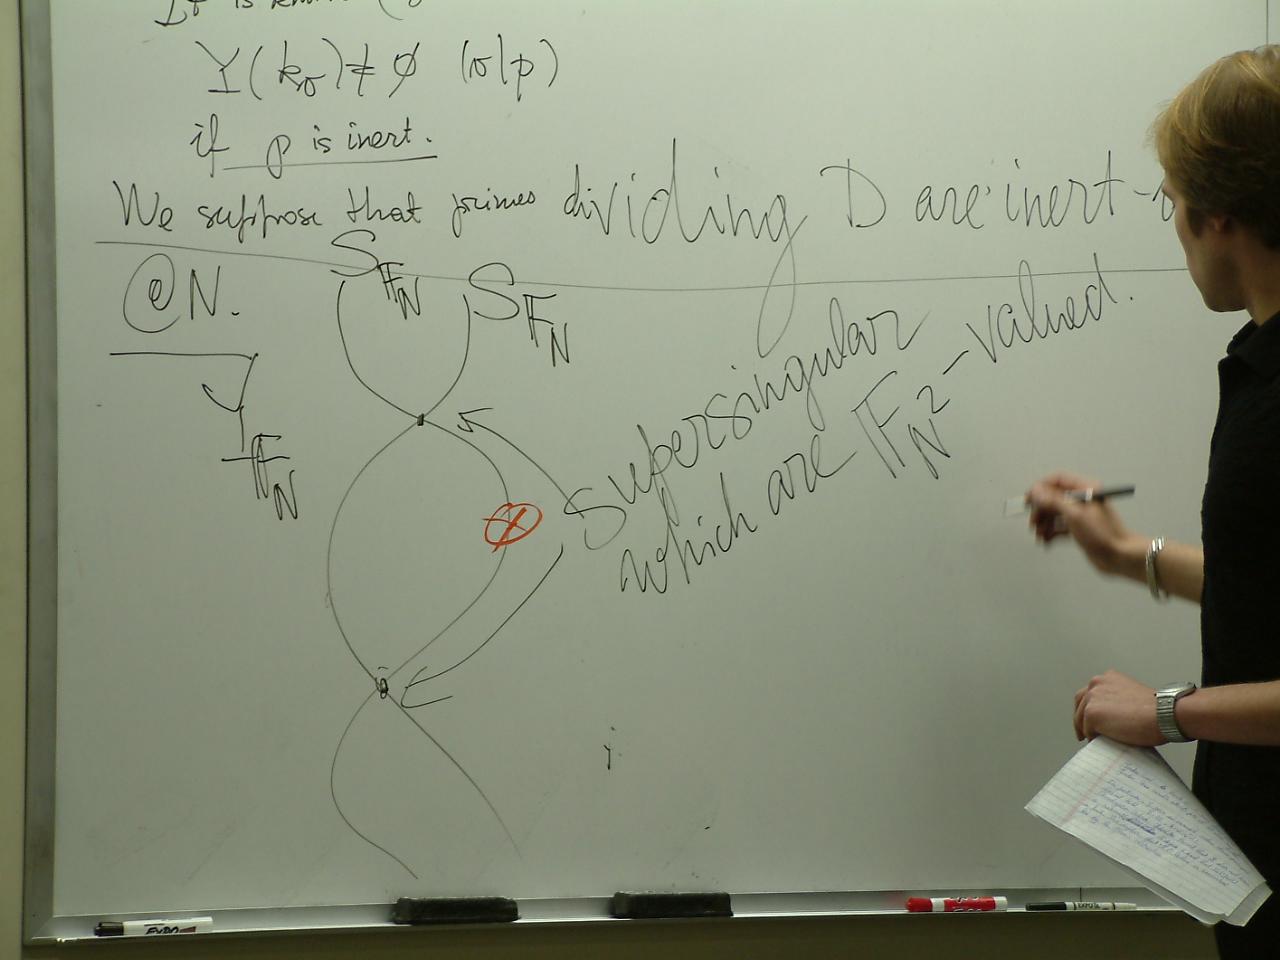 It is known
Y(k_σ) ≠ ∅ (σ|p)
if p is inert.
We suppose that primes dividing D are inert
@N.
S_{𝔽_N} S_{𝔽_N}
Y_{𝔽_N}
Supersingular
which are 𝔽_{N²}-valued.
EXPO
EXPO